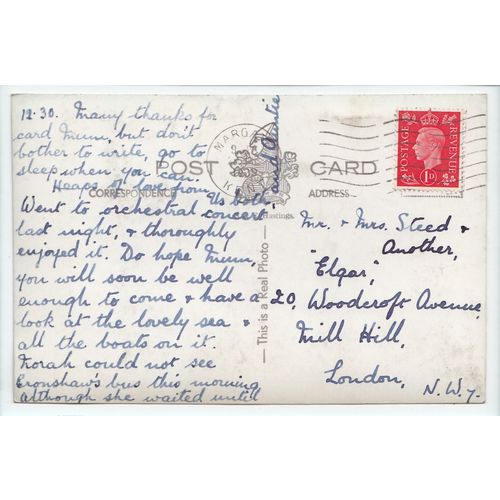 12.30. Many thanks for
card Mum, but don't
bother to write, go to
sleep when you can.
Heaps of love from
Us both,
and Auntie
Went to orchestral concert
last night, & thoroughly
enjoyed it. Do hope Mum,
you will soon be well
enough to come & have a
look at the lovely sea &
all the boats on it.
Norah could not see
Cronshaws bus this morning
although she waited until
POST CARD
CORRESPONDENCE
ADDRESS
MARGA
K
Hastings.
— This is a Real Photo —
POSTAGE
REVENUE
1D
Mr. & Mrs. Steed &
Another,
"Elgar,"
20, Woodcroft Avenue,
Mill Hill,
London,
N.W.7.